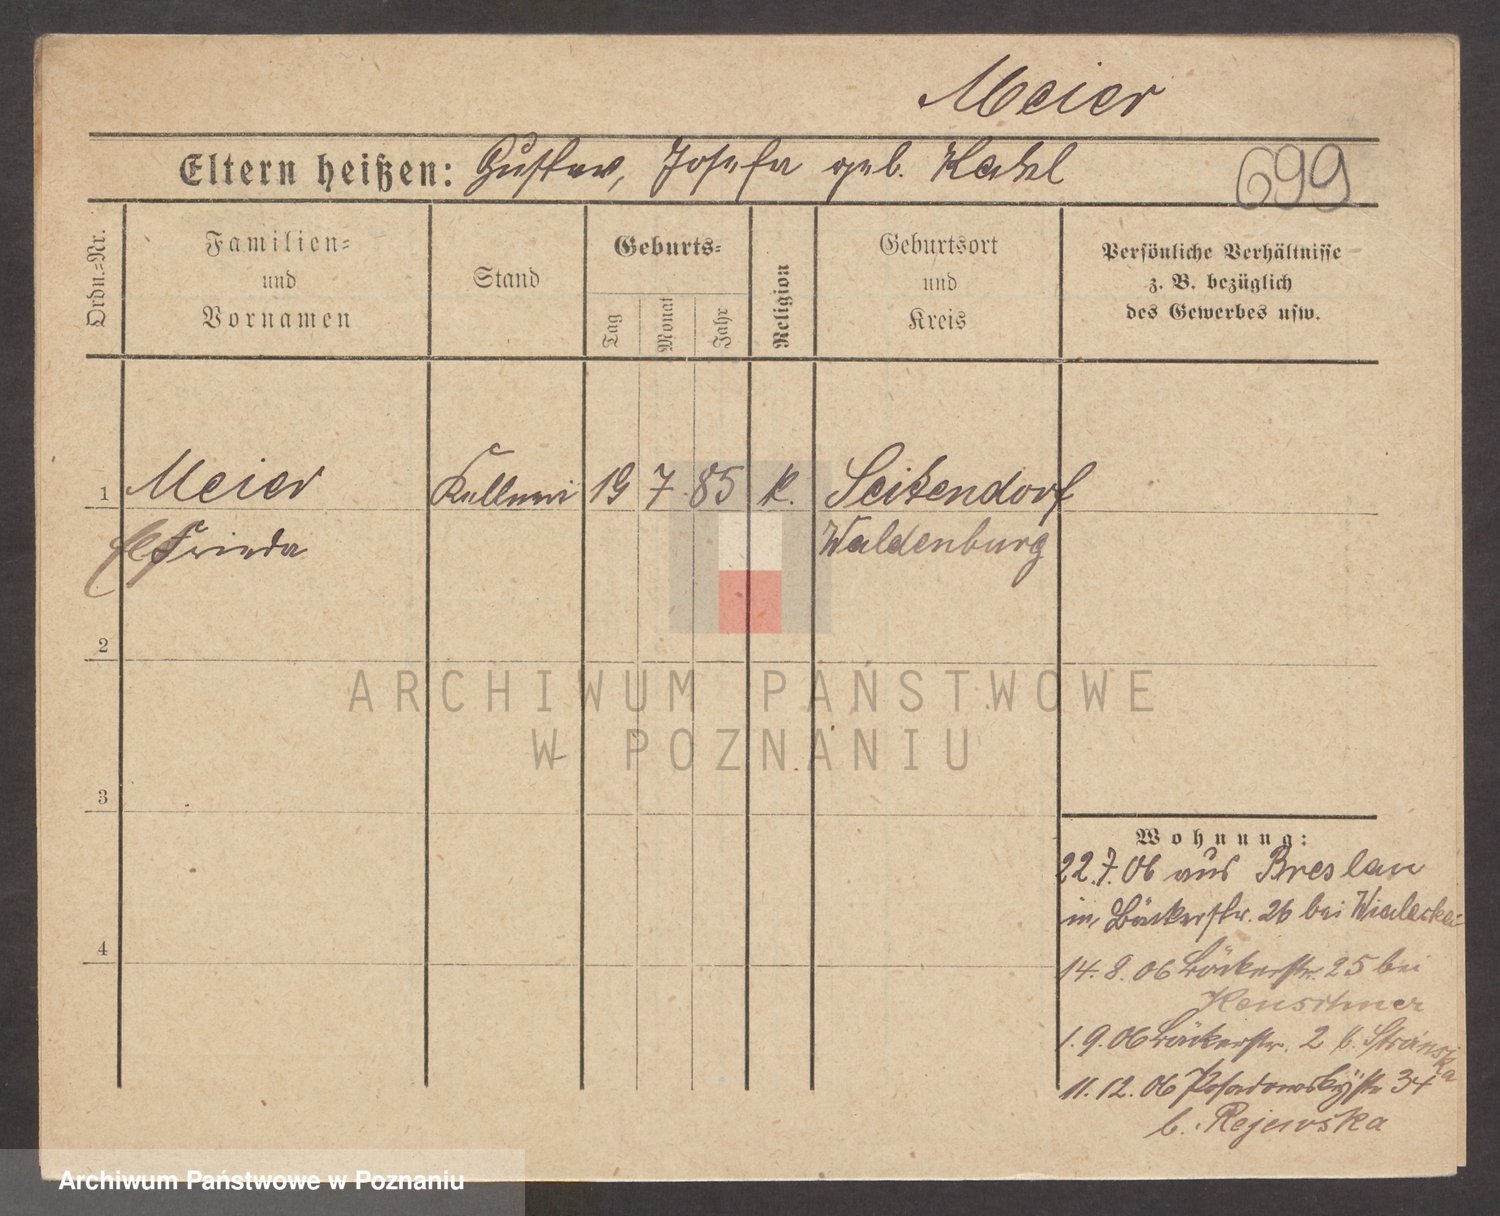 Meier
Eltern heißen: Gustav, Josefa geb.
699
Ordn.=Nr.
Familien=
und
Vornamen
Stand
Geburts=
Tag
Monat
Jahr
Religion
Geburtsort
und
Kreis
Persönliche Verhältnisse
z. B. bezüglich
des Gewerbes usw.
1 Meier Kellnerin 19 7. 85 k. Seitendorf
Frieda Waldenburg
2
3
4
ARCHIWUM PAŃSTWOWE
W POZNANIU
Wohnung:
22.7.06 aus Breslau
in Bäckerstr. 26 bei
14.8.06 Bäckerstr. 25 bei
1.9.06 Bäckerstr. 2 b.
11.12.06 Posadowskystr 34
b. Rejewska
Archiwum Państwowe w Poznaniu